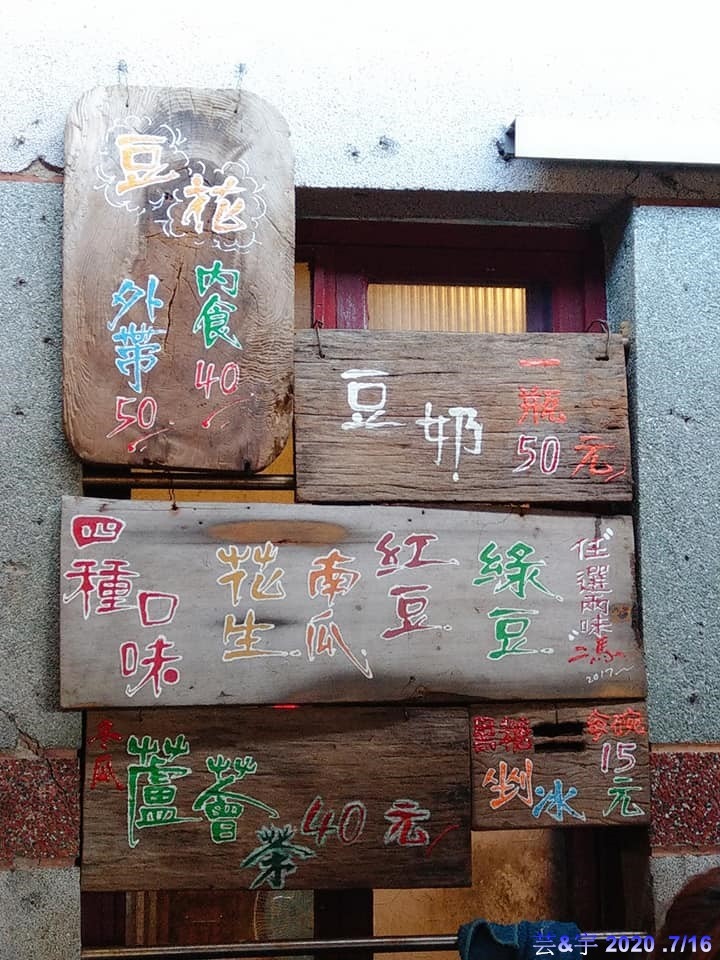 豆花
內食40
外帶50
豆奶
一瓶
50元
四種
口味
花生
南瓜
紅豆
綠豆
任選兩味
馮
2017
冬瓜
蘆薈
40元
黑糖
剉冰
15元
2020 .7/16